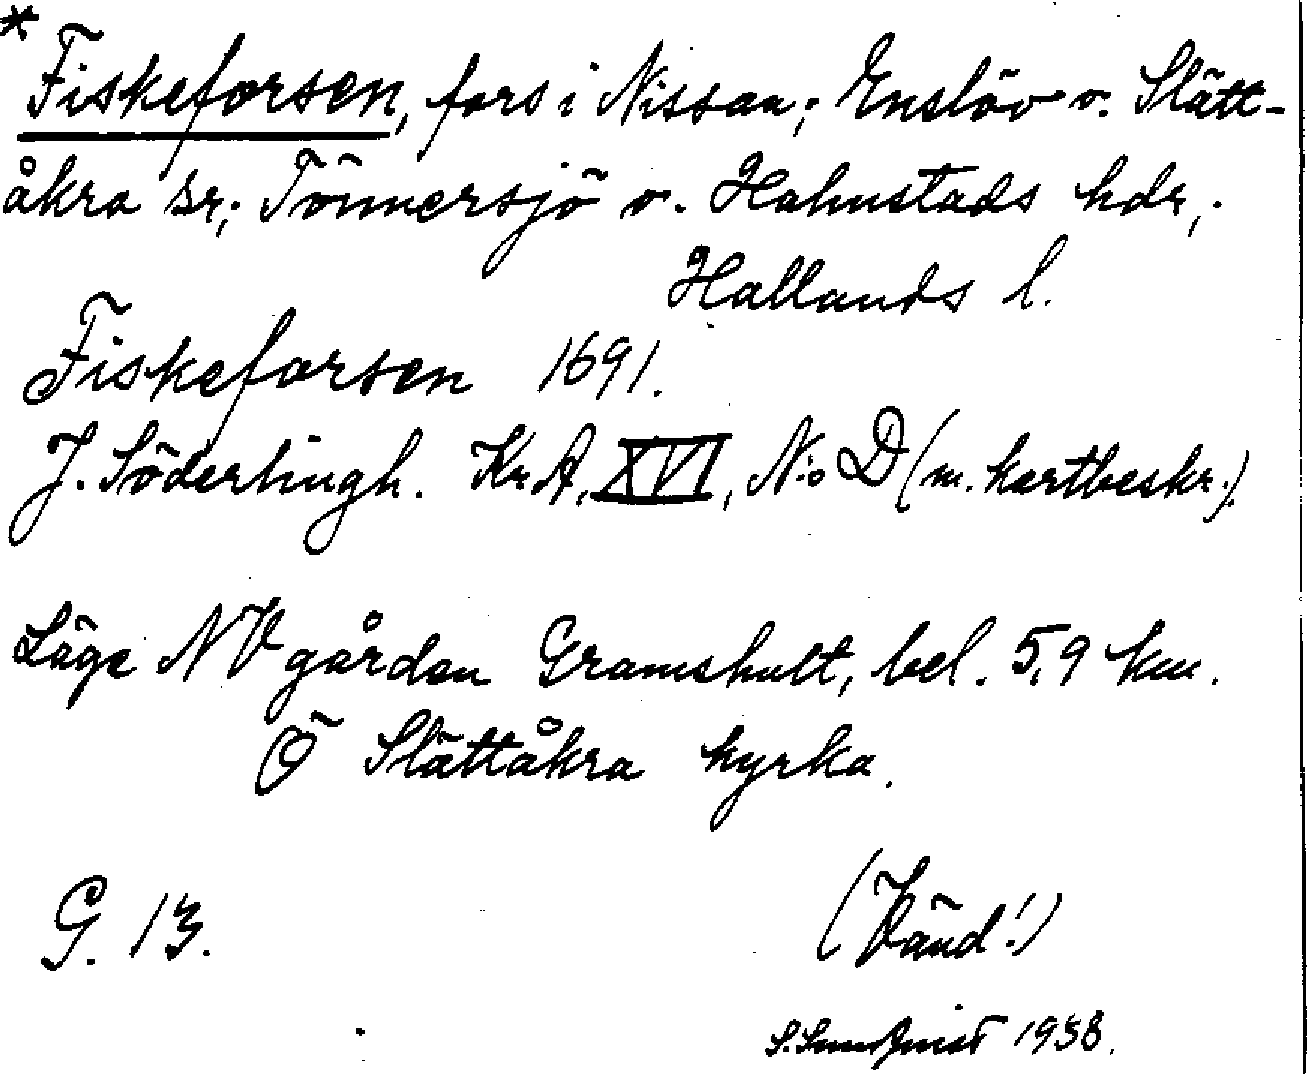 * Fiskeforsen, fors i Nissan; Enslöv o. Slätt-
åkra sr; Tönnersjö o. Halmstads hdr,;
Hallands l.
Fiskeforsen 1691.
J. Söderlingh. Kr.A, XVI, N:o D (m. kartbeskr.).
Läge NV gården Gramshult, bel. 5,9 km.
Ö Slättåkra kyrka.
G. 13.
(Vänd!)
S. Sundqvist 1938.